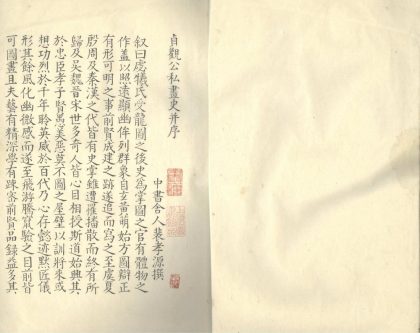 貞觀公私畫史并序
中書舍人裴孝源撰
叙曰虙犧氏受龍圖之後史為掌圖之官有體物之
作盖以照遠顯幽侔列群象自玄黃萌始方圓辯正
有形可明之事前賢成建之跡遂追而寫之至虞夏
殷周及秦漢之代皆有史掌雖遭罹播散而終有所
歸及吳魏晉宋世多奇人皆心目相授斯道始興其
於忠臣孝子賢愚美惡莫不圖之屋壁以訓將來或
想功烈於千年聆英威於百代乃心存懿迹默匠儀
形其餘風化幽微感而遂至飛游騰竄驗之目前皆
可圖畫且夫藝有精深學有踈客前賢品録益多其